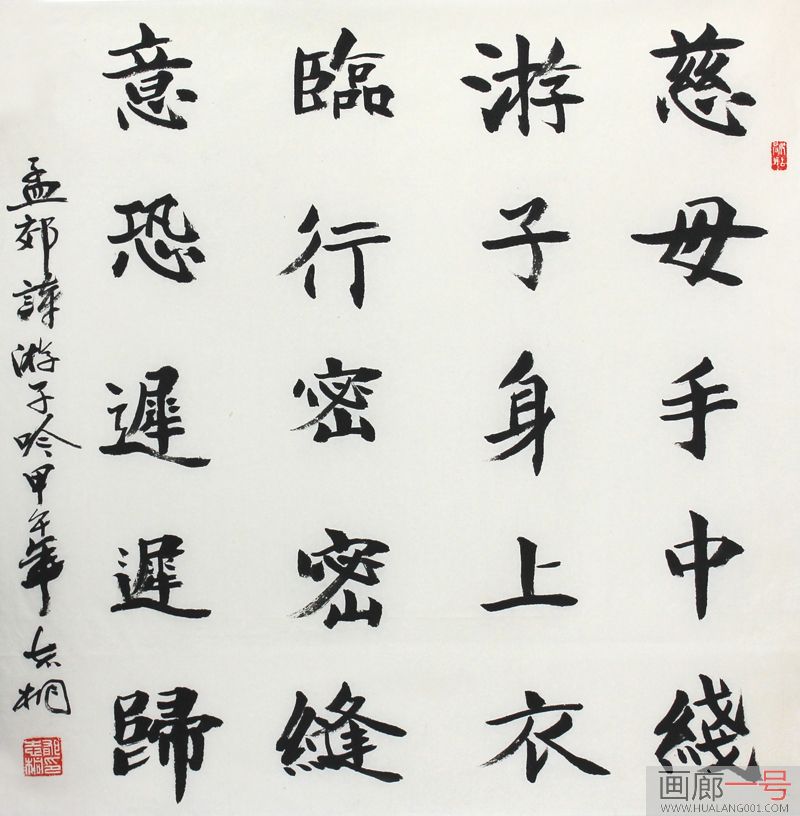 慈母手中綫
游子身上衣
臨行密密縫
意恐遲遲歸
孟郊詩游子吟甲午年志桐
画廊一号
WWW.HUALANG001.COM